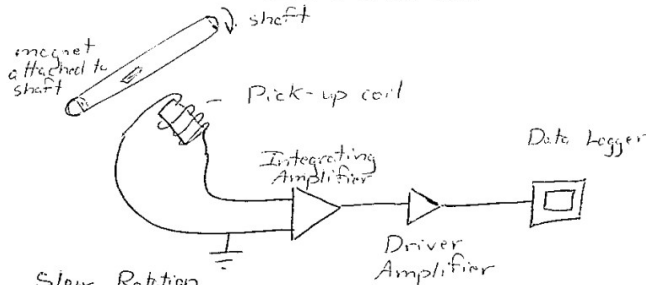 shaft
magnet
attached to
shaft
Pick-up coil
Integrating
Amplifier
Data Logger
Driver
Amplifier
Slow Rotation